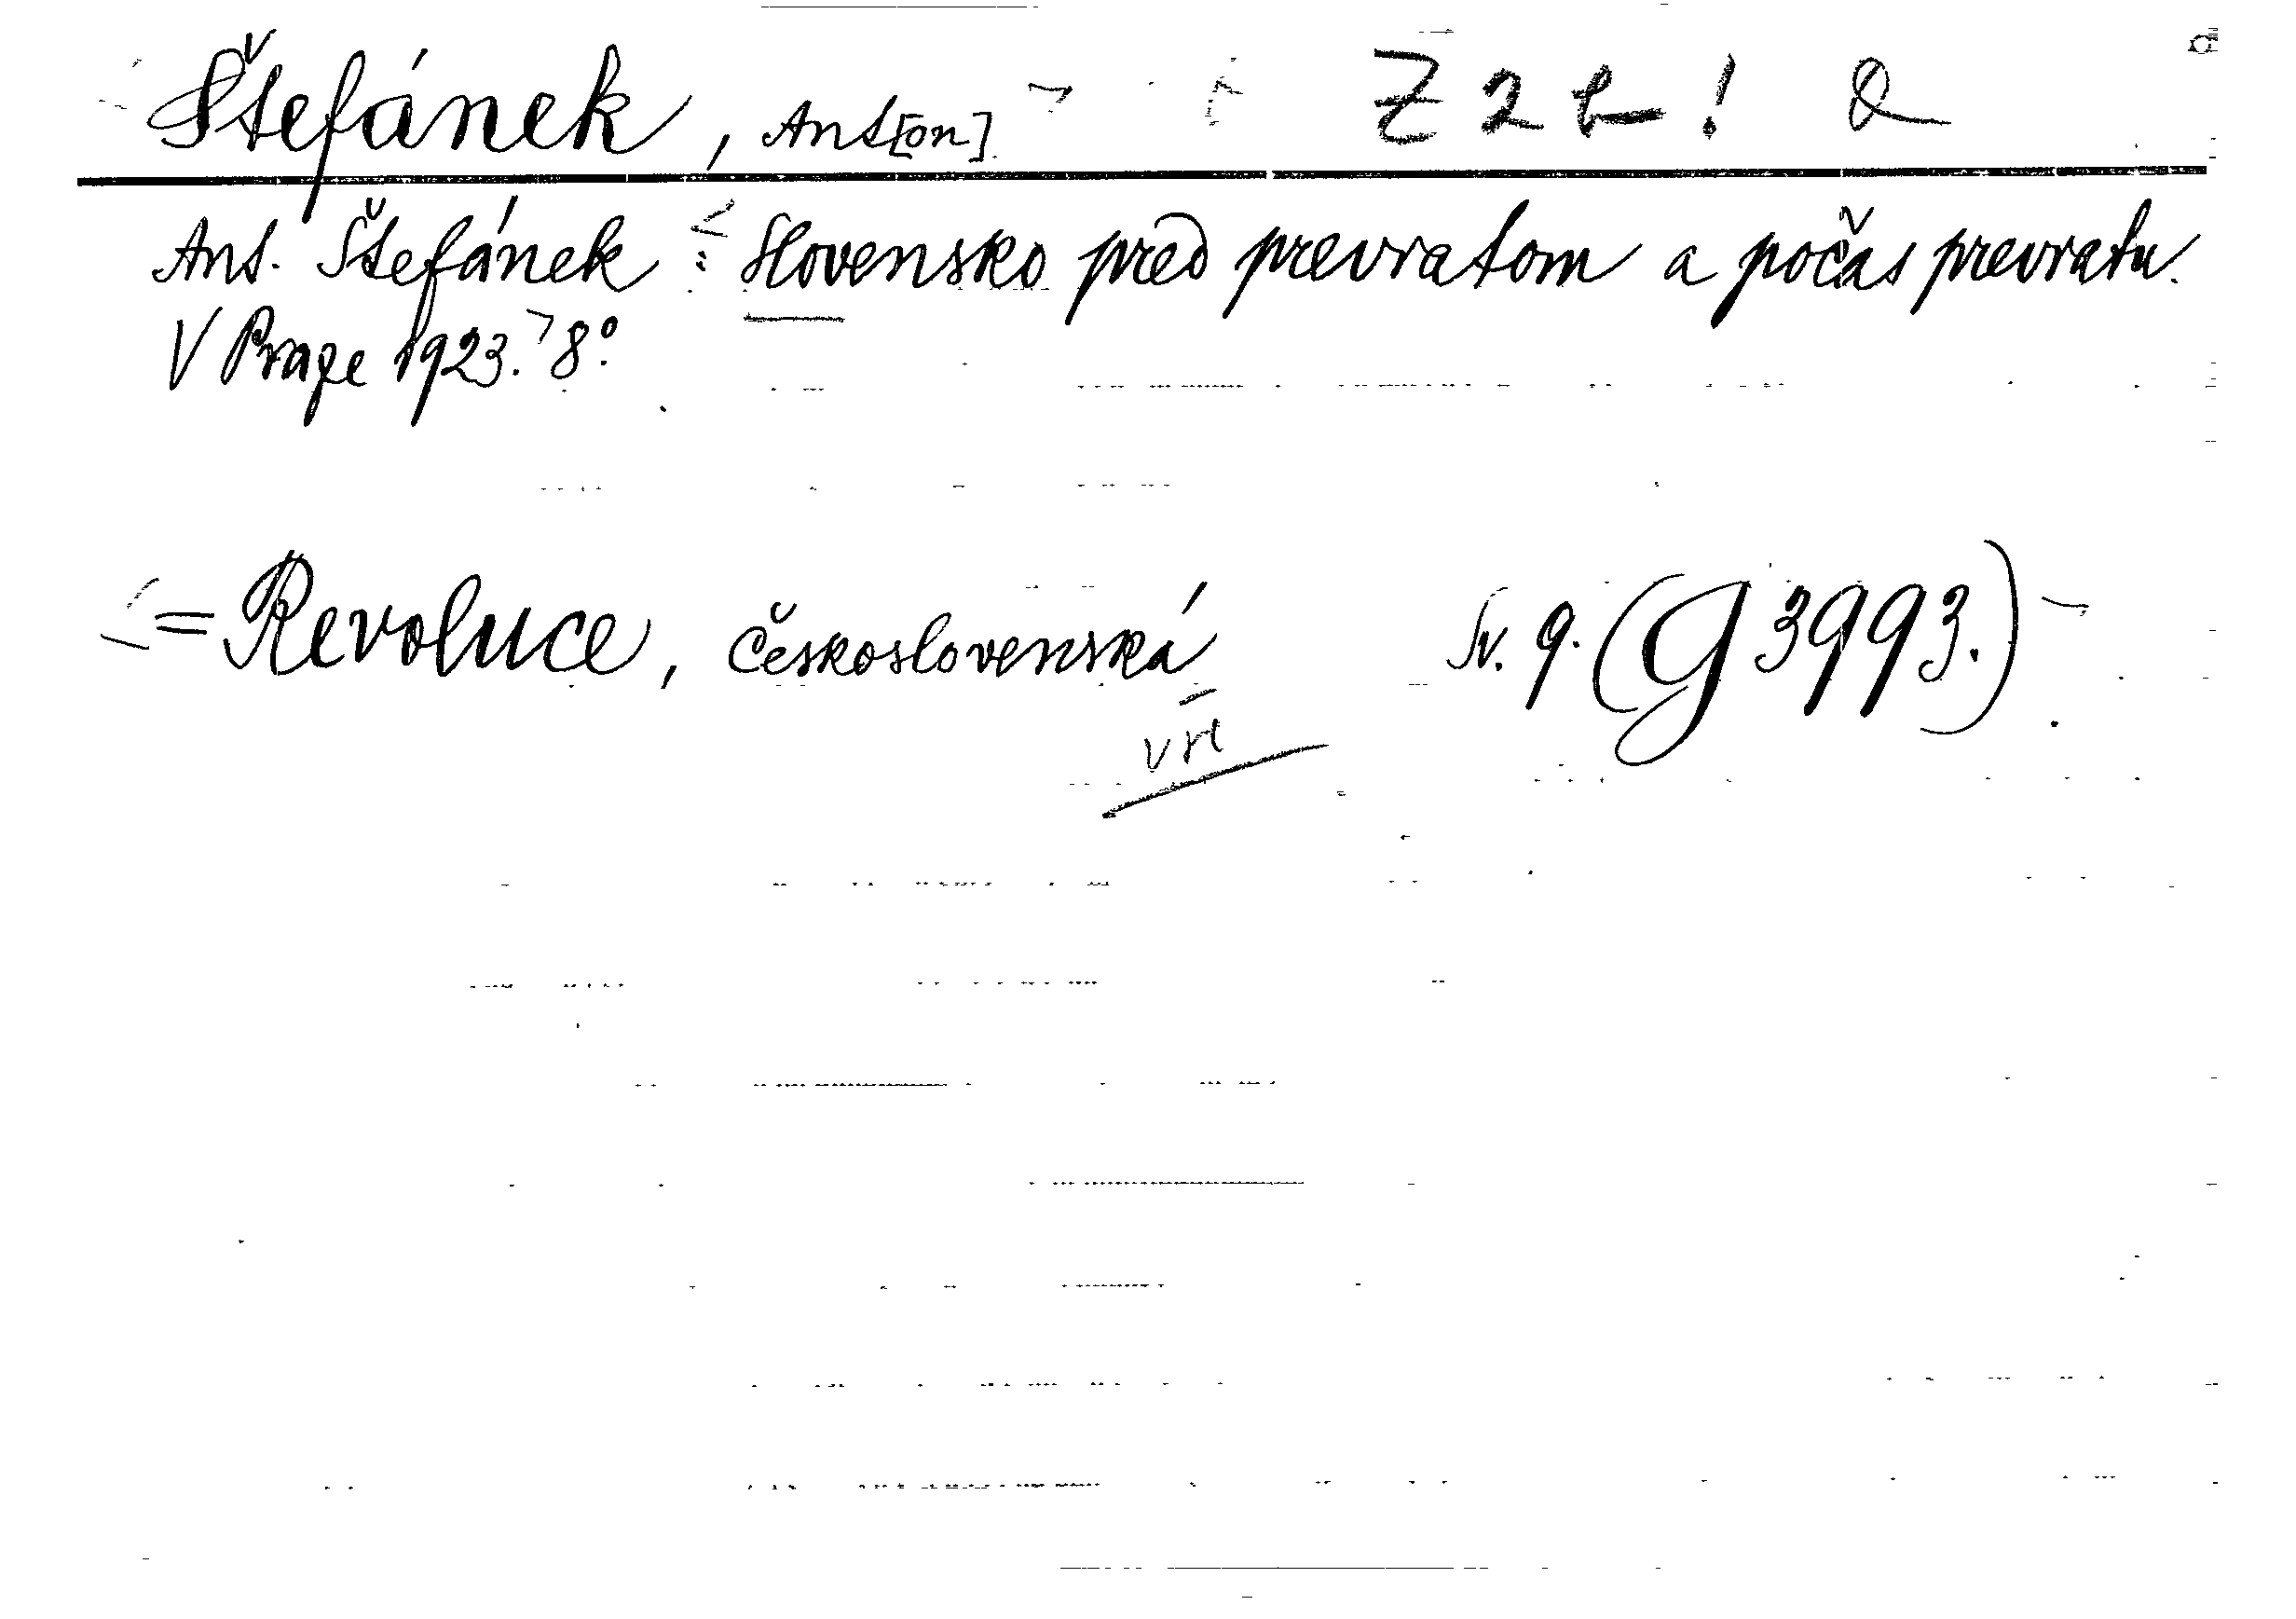 Štefánek, Ant[on]
Ant. Štefánek: Slovensko pred prevratom a počas prevratu.
V Praze 1923. 8°.
= Revoluce, československá Sv. 9. (G 3993.)